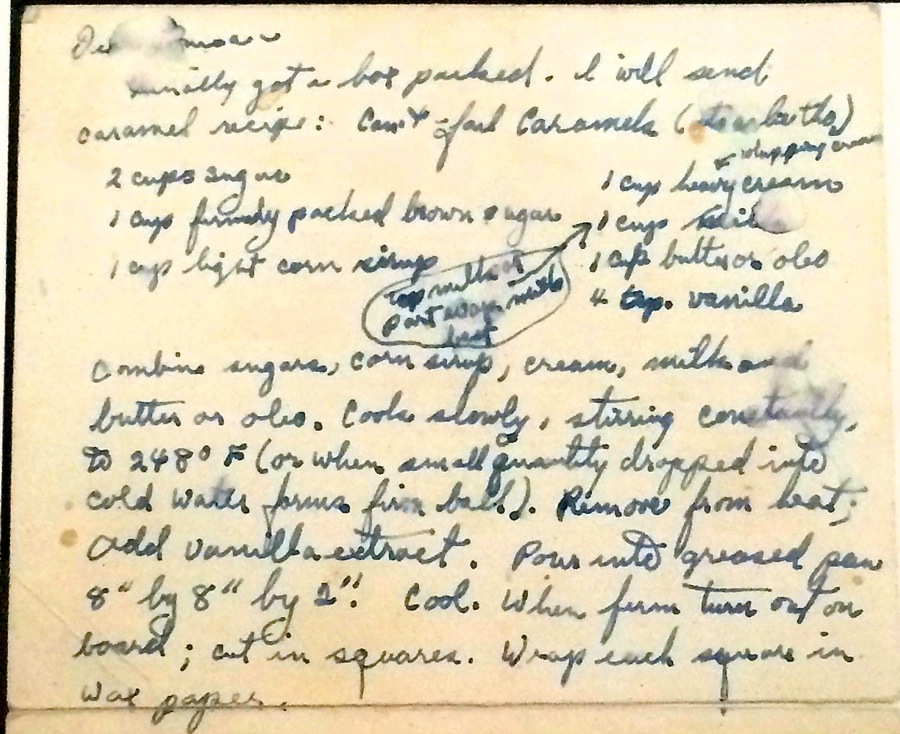 Finally got a box packed. I will send
caramel recipe: Can't-fail Caramels (
whipping cream
2 cups sugar
1 cup heavy cream
1 cup firmly packed brown sugar
1 cup milk
1 cup light corn sirup
1 cup butter or oleo
Top milk or
part evap. milk
best
4 tsp. vanilla
Combine sugars, corn sirup, cream, milk and
butter or oleo. Cook slowly, stirring constantly,
to 248° F (or when small quantity dropped into
cold water forms firm ball). Remove from heat;
add vanilla extract. Pour into greased pan
8" by 8" by 2". Cool. When firm turn out on
board; cut in squares. Wrap each square in
wax paper.